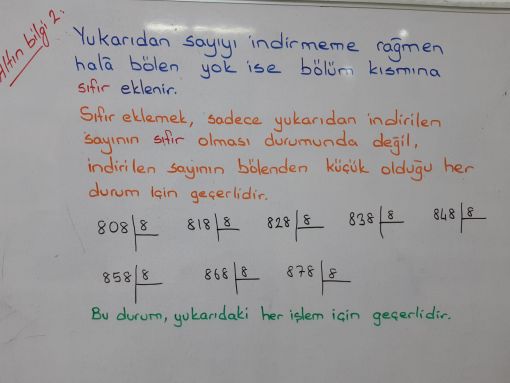 Altın bilgi 2:
Yukarıdan sayıyı indirmeme rağmen
halâ bölen yok ise bölüm kısmına
sıfır eklenir.
Sıfır eklemek, sadece yukarıdan indirilen
sayının sıfır olması durumunda değil,
indirilen sayının bölenden küçük olduğu her
durum için geçerlidir.
808 8 818 8 828 8 838 8 848 8
858 8 868 8 878 8
Bu durum, yukarıdaki her işlem için geçerlidir.